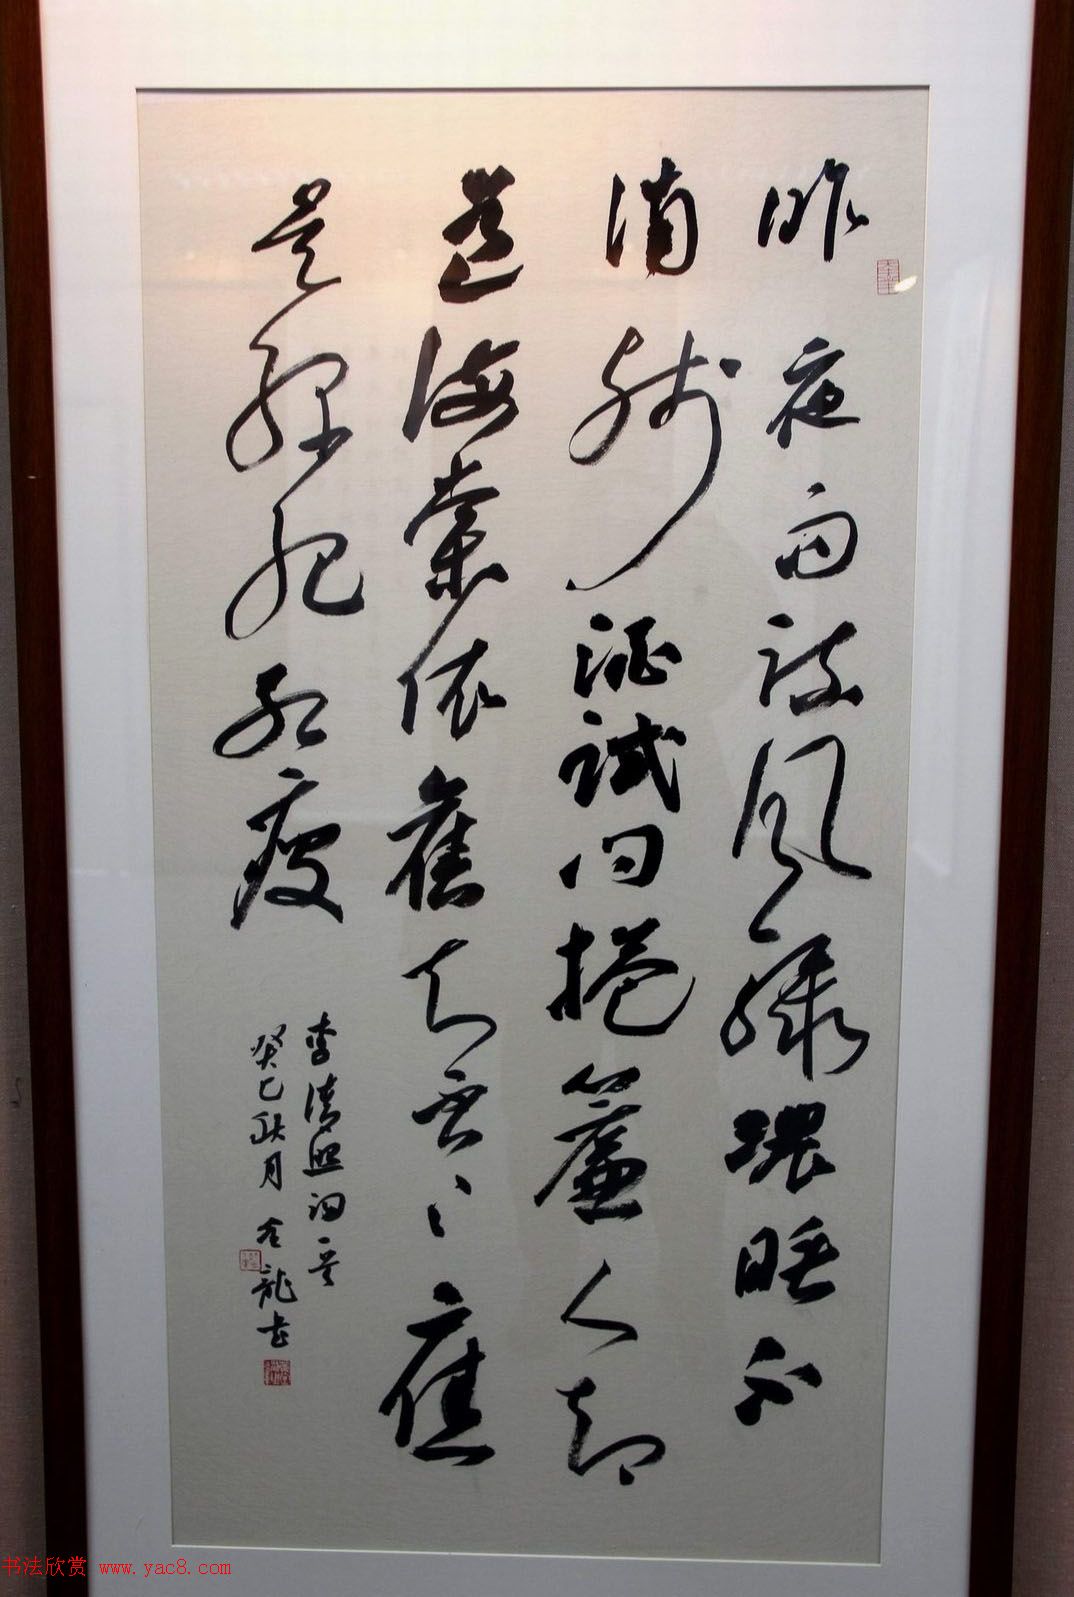 昨夜雨疏风骤浓睡不
消残酒試问捲簾人却
道海棠依舊知否〻〻應
是绿肥红瘦
李清照词
癸巳秋月 龙书
书法欣赏 www.yac8.com